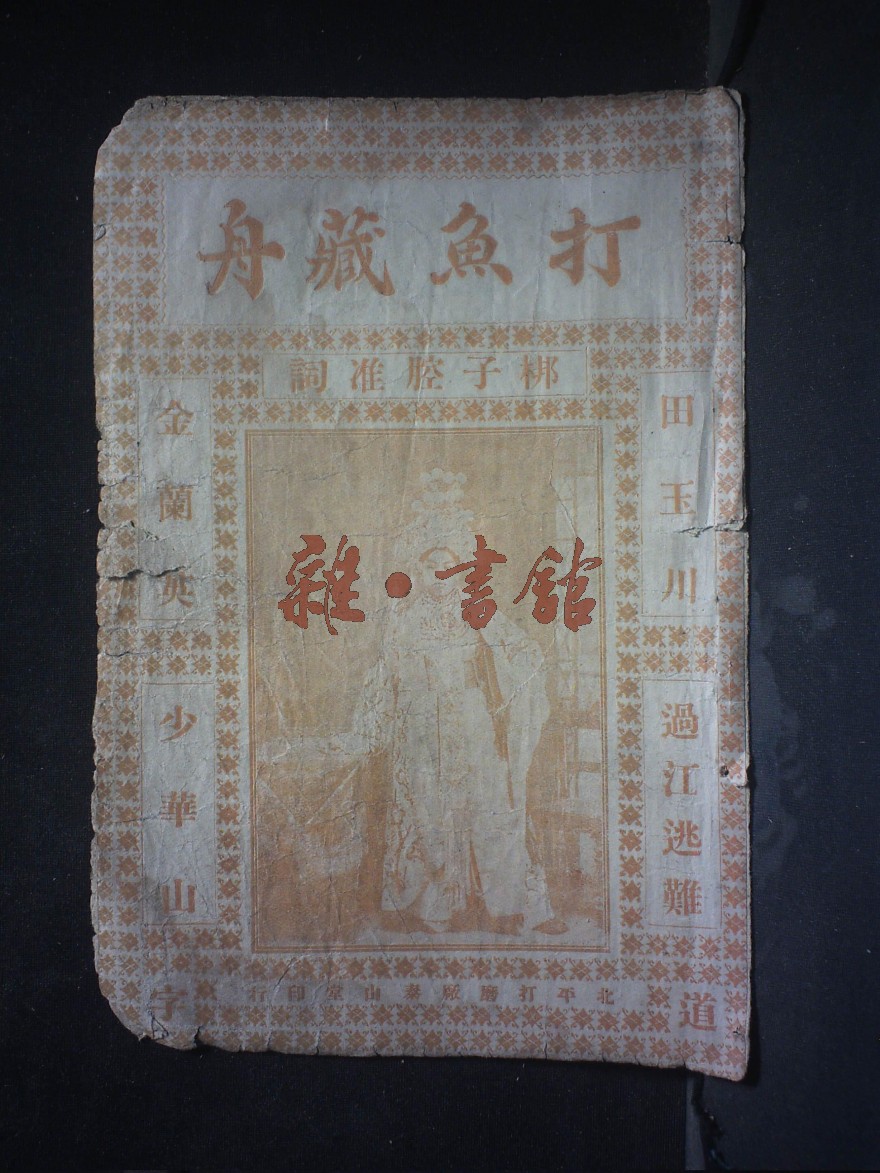 打魚藏舟
梆子腔准詞
田玉川
過江逃難
金蘭英
少華山
雜·書館
北平打磨廠泰山堂印行
道
字